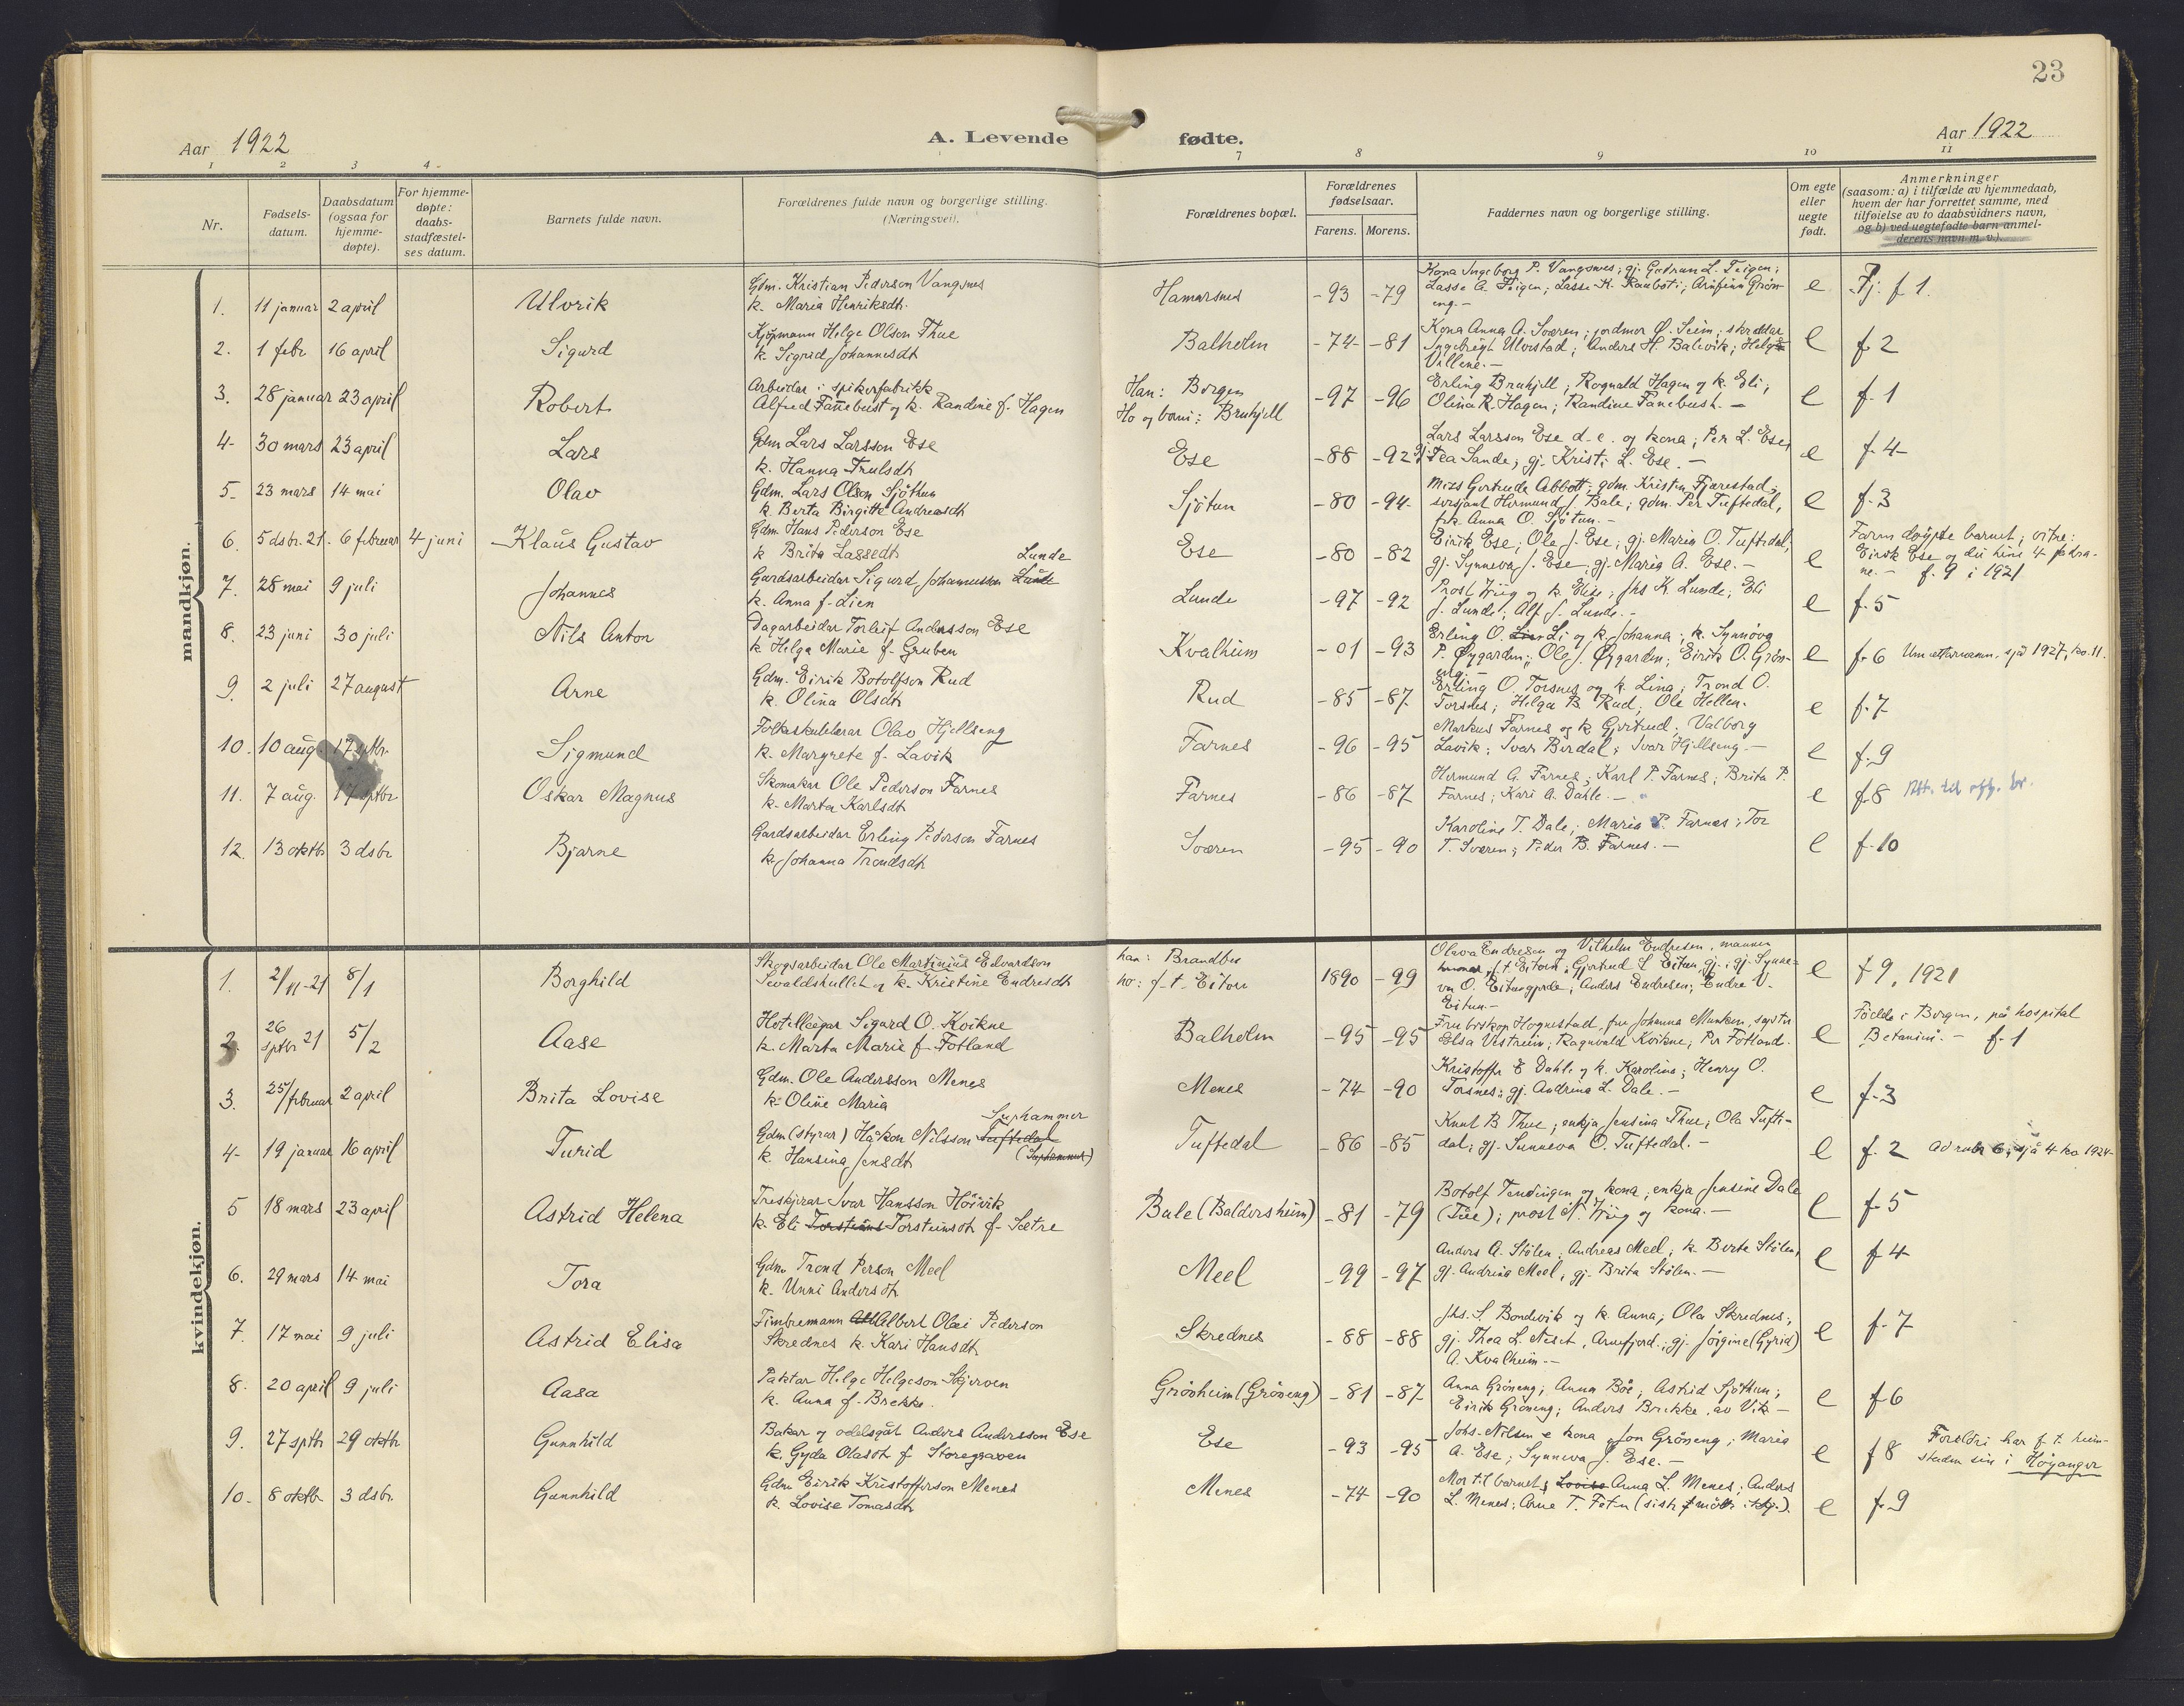 23
Aar 1922
A. Levende fødte.
Aar 1922
1 2 3 4 7 8 9 10 11
Nr.
Fødsels-
datum.
Daabsdatum
(ogsaa for
hjemme-
døpte).
For hjemme-
døpte:
daabs-
stadfæstel-
ses datum.
Barnets fulde navn.
Forældrenes fulde navn og borgerlige stilling.
(Næringsvei).
Forældrenes bopæl.
Forældrenes
fødselsaar.
Farens. Morens.
Faddernes navn og borgerlige stilling.
Om egte
eller
uegte
født.
Anmerkninger
(saasom: a) i tilfælde av hjemmedaab,
hvem der har forrettet samme, med
tilføielse av to daabsvidners navn,
og b) ved uegtefødte barn anmel-
derens navn m. v.).
mandkjøn.
1. 11 januar 2 april Ulvrik
Gdm. Kristian Pederson Vangsnes
k. Maria Henriksdt.
Hamarsnes -93 -79
Kona Ingeborg P. Vangsnes; gj. Gudrun L. Feigen;
Lasse A. Feigen; Lasse H. Rauboti; Arnfinn Grön-
eng.-
e f 1.
2. 1 febr 16 april Sigurd
Kjöpmann Helge Olson Thue
k. Sigrid Johannesdt
Balholm -74 -81
Kona Anna A. Sværen; jordmor Ø. Seim; skreddar
Ingebrigt Ulvestad; Anders H. Balevik; Helge
Villene.-
e f 2
3. 28 januar 23 april Robert
Arbeidar i spikerfabrikk
Alfred Fannebust og k. Randine f. Hagen
Han: Bergen
Ho og barni: Bruhjell
-97 -96
Erling Bruhjell; Rognald Hagen og k. Eli;
Olina R. Hagen; Randine Fanebust.-
e f. 1
4- 30 mars 23 april Lars
Gdm Lars Larsson Ese
k. Hanna Trulsdt
Ese -88 -92
Lars Larsson Ese d.e. og kona; Per L. Ese,
gj. Tea Sande; gj. Kristi L. Ese.-
e f. 4-
5. 23 mars 14 mai Olav
Gdm. Lars Olson Sjöthun
k. Berta Birgitte Andreasdt
Sjötun -80 -94-
Miss Gertrude Abbott; gdm. Kristen Fjærestad;
sersjant Hermund J. Bale; gdm. Per Tuftedal,
frk. Anna O. Sjötun.-
e f. 3
6. 5 dsbr. 21. 6 februar 4 juni Klaus Gustav
Gdm. Hans Pederson Ese
k Brita Lassedt
Ese -80 -82
Eirik Ese; Ole J. Ese; gj. Maria O. Tuftedal;
gj. Synneva J. Ese; gj. Maria A. Ese.-
e
Faren döypte barnet; vitne:
Eirik Ese og dei hine 4 fadra-
ne.- f. 9 i 1921
7. 28 mai 9 juli Johannes
Gardsarbeidar Sigurd Johannesson Lunde
k. Anna f. Lien
Lunde -97 -92
Prost Wiig og k. Elise; Jhs K. Lunde; Eli
J. Lunde; Alf J. Lunde.-
e f. 5
8. 23 juni 30 juli Nils Anton
Dagarbeidar Torleif Andersson Ese
k Helga Marie f. Gruben
Kvalheim -01 -93
Erling O. Li og k. Johanna; k. Synnöva
P. Øygarden; Ole J. Øygarden; Eirik O. Grön-
eng.-
e f. 6 Um etternamn. sjå 1927, ko. 11.
9. 2 juli 27 august Arne
Gdm. Eirik Botolfson Rud
k. Olina Olsdt
Rud -85 -87
Erling O. Torsnes og k. Lina; Trond O.
Torsnes; Helga B. Rud; Ole Hellen.
e f. 7
10. 10 aug. 17 sptbr. Sigmund
Folkeskulelærar Olav Hjellseng
k. Margrete f. Lavik
Farnes -96 -95
Markus Farnes og k Gjertrud; Valborg
Lavik; Ivar Berdal; Ivar Hjellseng.-
e f. 9
11. 7 aug. 17 sptbr Oskar Magnus
Skomakar Ole Pederson Farnes
k. Marta Karlsdt
Farnes -86 -87
Hermund G. Farnes; Karl P. Farnes; Brita P.
Farnes; Kari A. Dahle.-
e f. 8
12. 13 oktbr 3 dsbr Bjarne
Gardsarbeidar Erling Pederson Farnes
k. Johanna Trondsdt
Sværen -95 -90
Karoline T. Dale; Maria P. Farnes; Tor
T. Sværen; Peder B. Farnes.-
e f. 10
kvindekjøn.
1. 2/11-21 8/1 Borghild
Skogsarbeidar Ole Martinius Edvardson
Sevaldshullet og k. Kristine Endresdt
han: Brandbu
ho: f.t. Eitorn
1890 -99
Olava Endresen og Vilhelm Endresen, mannen
f.t. Eitorn; Gjertrud L Eitun, gj.; gj. Synne-
va O. Eitungjerde; Anders Endresen; Endre V.
Eitun.-
e f 9, 1921
2. 26 sptbr 21 5/2 Aase
Hotelleigar Sigurd O. Kvikne
k. Marta Marie f. Fotland
Balholm -95 -95
Fru biskop Hognestad, fru Johanna Munken; syster
Elsa Vestreim; Ragnvald Kvikne; Per Fotland.
e
Fødd i Bergen, på hospital
Betanien.- f. 1
3. 25/februar 2 april Brita Lovise
Gdm. Ole Andersson Menes
k. Oline Maria
Menes -74 -90
Kristoffer E Dahle og k. Karolina; Henry O.
Torsnes; gj. Andrina L. Dale.-
e f. 3
4- 19 januar 16 april Turid
Gdm (styrar) Håkon Nilsson Tuftedal
Suphammer
k. Hansina Jensdt (Suphammer)
Tuftedal -86 -85
Knut B Thue; enkja Jensina Thue; Ola Tufte-
dal; gj. Sunneva O. Tuftedal.-
e f. 2 Ad rubr 6, sjå 4 ko 1924-
5 18 mars 23 april Astrid Helena
Treskjerar Ivar Hansson Höivik
k. Eli Torsteinsdt f. Sætre
Bale (Baldersheim) -81 -79
Botolf Tendingen og kona; enkja Jensine Dale
(Tue); prost N. Wiig og kona.-
e f. 5
6. 29 mars 14 mai Tora
Gdm Trond Person Meel
k. Unni Andersdt
Meel -99 -97
Anders A. Stölen; Andreas Meel; k. Berta Stölen;
gj. Andrina Meel; gj. Brita Stölen.-
e f 4
7. 17 mai 9 juli Astrid Elisa
Timbremann Albert Olai Pederson
Skrednes k. Kari Hansdt
Skrednes -88 -88
Jhs. S. Bondevik og k. Anna; Ola Skrednes;
gj. Thea L. Neset, Arnefjord; gj. Jörgine (Gyrid)
A. Kvalheim.-
e f. 7
8. 20 april 9 juli Aasa
Paktar Helge Helgeson Skjerven
k. Anna f. Brekke.
Grönheim (Gröneng) -81 -87
Anna Gröneng; Anna Böe; Astrid Sjöthun;
Eirik Gröneng; Anders Brekke, av Vik -
e f 6
9. 27 sptbr 29 oktbr Gunnhild
Bakar og odelsgut Anders Andersson Ese
k. Gyda Olasdt f Storegraven
Ese -93 -95
Johs. Nilsen e kona Jon Gröneng; Maria
A. Ese; Synneva J. Ese.-
e f 8
Foreldri har f.t. heim-
staden sin i Høyanger
10- 8 oktbr 3 dsbr. Gunnhild
Gdm Eirik Kristofferson Menes
k. Lovise Tomasdt
Menes -74 -90
Mor til barnet, Lovise Anna L. Menes; Anders
L. Menes; Arne T. Fet-n (sist møtte i kj.).
e f. 9